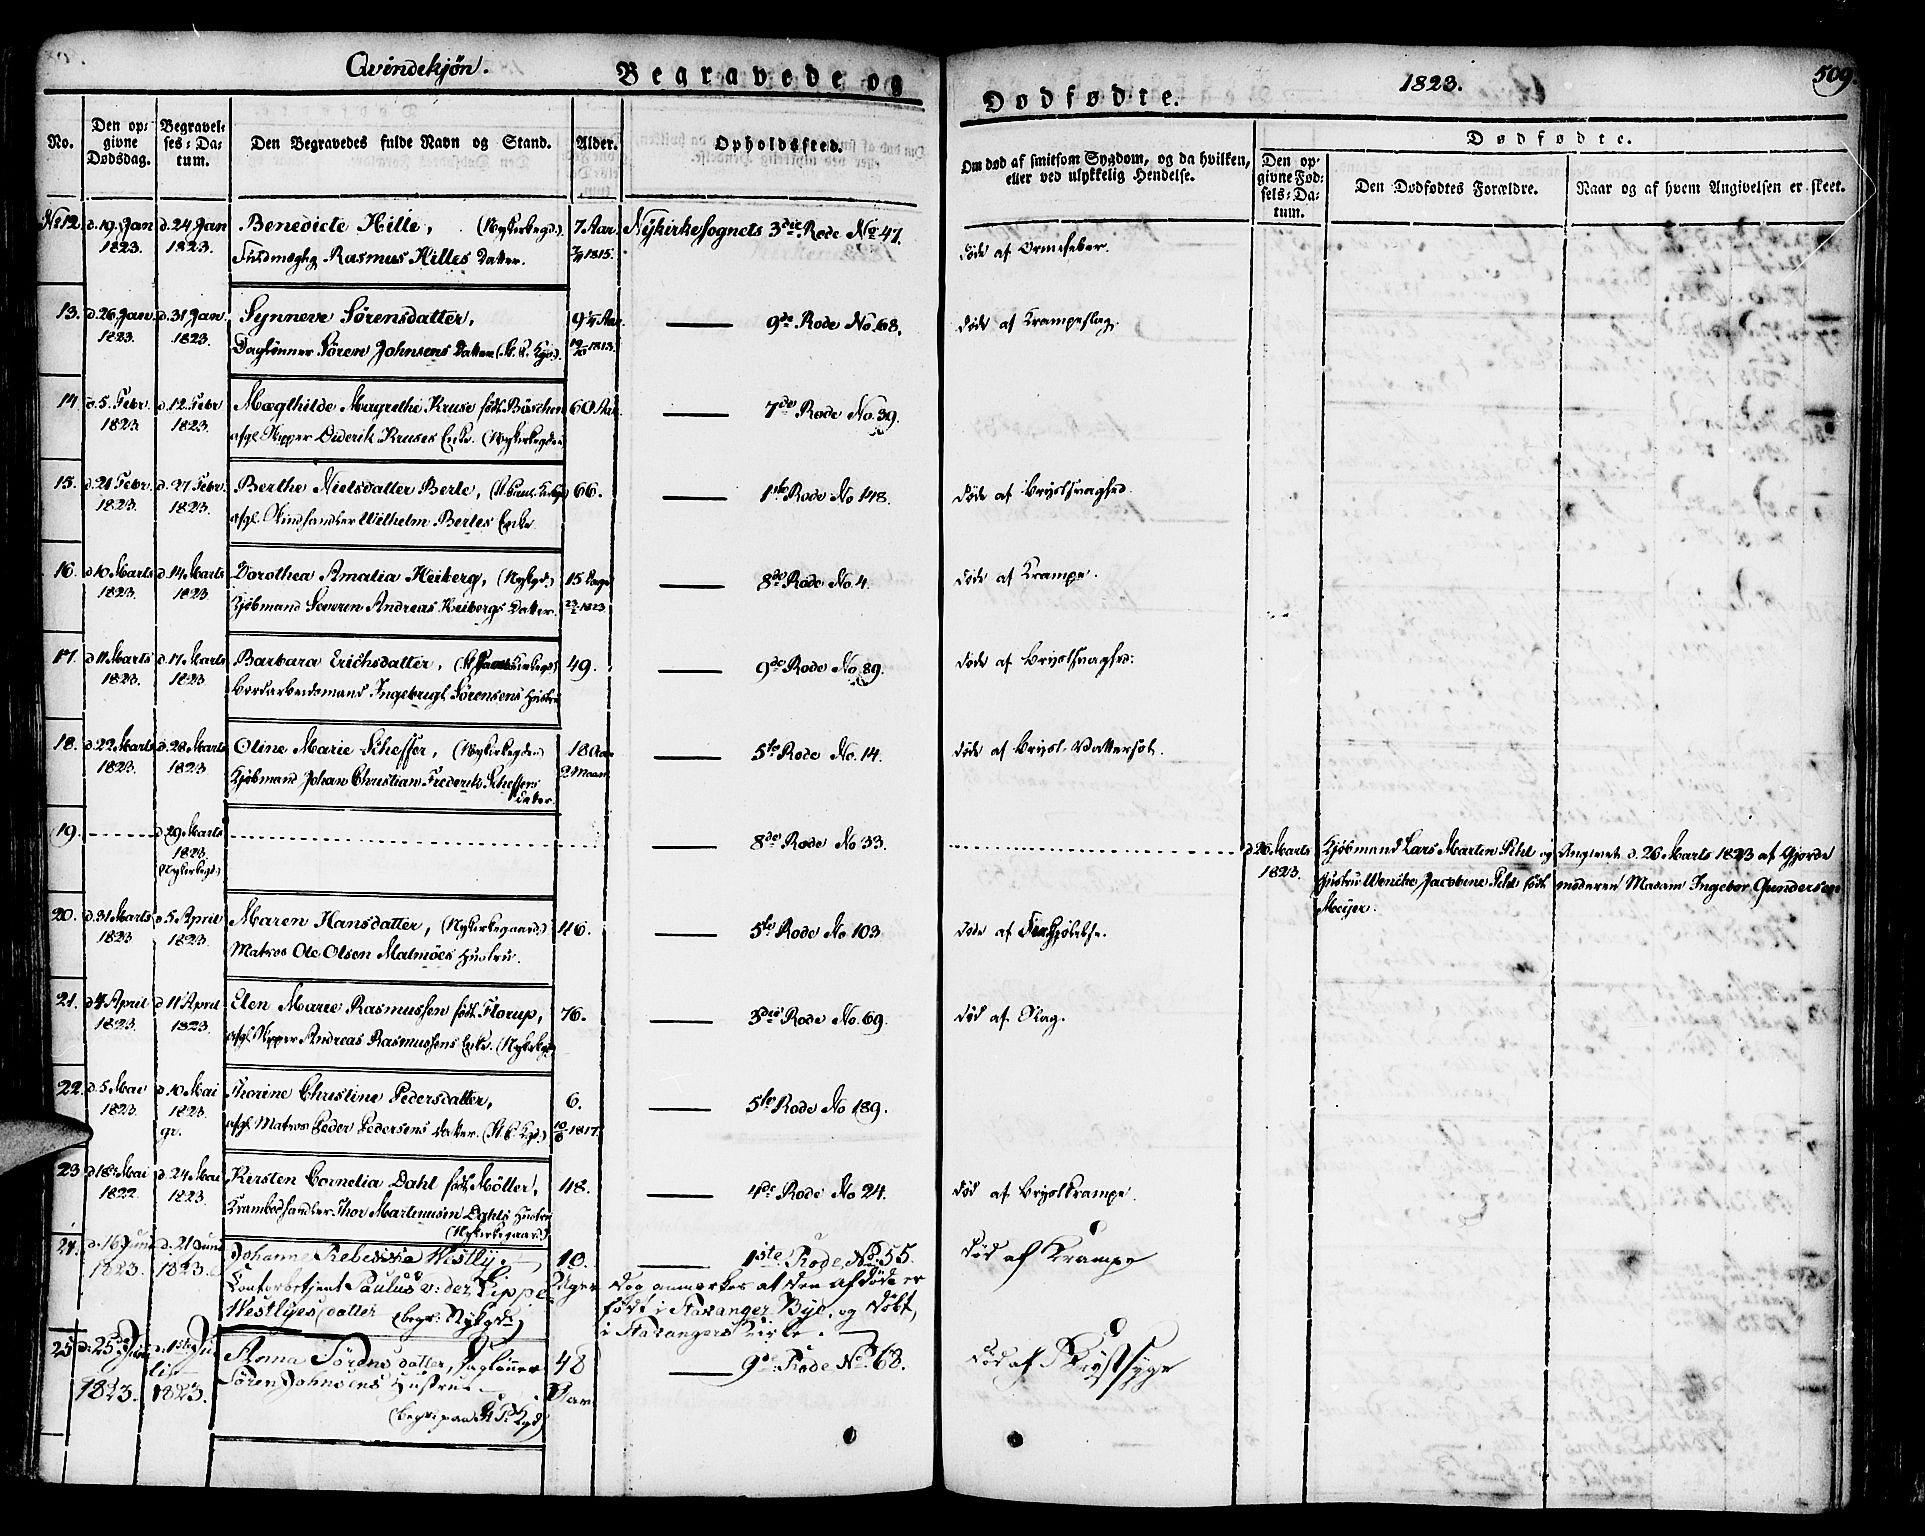 Qvindekjön.
Begravede og
Dødfødte.
1823.
509
No.
Den op-
givne
Dødsdag.
Begravel-
ses-Da-
tum.
Den Begravedes fulde Navn og Stand.
Alder.
Opholdssted.
Om død af smitsom Sygdom, og da hvilken,
eller ved ulykkelig Hendelse.
Dødfødte.
Den op-
givne Fød-
sels-Da-
tum.
Den Dødfødtes Forældre.
Naar og af hvem Angivelsen er skeet.
No 12. d. 19. Jan 1823. d. 24. Jan 1823. Benedicte Hille, (Nykirkegd.) 7 Aar Nykirkesognets 3die Rode No. 47. døde af Ormefeber.
Rasmus Hilles Datter. 1815.
13. d. 26. Jan 1823. d. 31. Jan 1823. Synneve Sørensdatter, 9¼ Aar 9de Rode No. 68. døde af Krampeslag.
Daglönner Søren Johnsens Datter (St. P. Kgd.) 1813.
14 d. 5. Febr. 1823 d. 12. Febr 1823. Mægthilde Magrethe Kruse föd Böschen 60 Aar 7de Rode No. 39.
afgl. Skipper Diderik Kruses Enke. (Nykirkegden)
15. d. 21 Febr. 1823. d. 27 Febr. 1823. Berthe Nielsdatter Berle, 66. 1ste Rode No 148. døde af Brystsvaghed.
afgl. Wilhelm Berles Enke
16. d. 10 Marts 1823. d. 14 Marts 1823. Dorothea Amalia Heiberg, (Nykgd.) 15 Dage 8de Rode No. 4. døde af Krampe.
Kjöbmand Severen Andreas Heibergs Datter. 1823
17. d. 11 Marts 1823. d. 17 Marts 1823 Barbara Erichsdatter, 49. 9de Rode No. 89. døde af Brystsvaghed.
Bordarbeidsmand Ingebrigt Sørensens Hustru
18. d. 22 Marts 1823. d. 28 Marts 1823 Oline Marie Scheffer, (Nykirkegden) 18 Aar 2 Maan 5te Rode No. 14. døde af Bryst-Vattersot.
Kjöbmand Johan Christian Frederik Scheffers
Datter.
19. d. 29 Marts 1823. (Nykirkegd.) 8de Rode No 33. d. 26 Marts 1823. Kjöbmand Lars Marten Pihl og Angivet d. 26 Marts 1823 af Gjorde
Hustru Wenche Jacobine Pihl föd moderen Madam Ingebor Gundersen
Meijer.
20. d. 31 Marts 1823 d. 5 April 1823. Maren Hansdatter, (Nykirkegaard.) 46. 5te Rode No 103 døde af
Matros Ole Olsen Malmöes Hustru.
21. d. 4 April 1823. d. 11 April 1823. Elen Marie Rasmussen föd Florup, 76. 3die Rode No. 69. død af Slag.
afgl. Skipper Andreas Rasmussens Enke.
22. d. 5 Mai 1823. d. 10 Mai 1823. gr. Thorine Christine Pedersdatter, 6. 5te Rode No 189.
afgl. Matros Peder Pedersens Datter. (St. P. Kgd.) 1817.
23. d. 18 Mai 1822. d. 24 Mai 1823. Kirsten Cornelia Dahl föd Möller, 48. 4de Rode No 24. død af Brystkrampe.
Krambodhandler Thor Martinusen Dahls Hustru
(Nykirkegaard.)
24. d. 16 Juni 1823. d. 21 Juni 1823. Johanne Rebecka Westly, 10 Uger 1ste Rode No 55. død af Krampe
Contorbetjent Paulus v: der Lippe Dog anmerkes at den afdøde er
Westlyes datter (begr. Nykgd.) født i Stavanger Bye, og døbt
i Stavangers Kirke.
25 d. 25de Juni 1823. d. 1ste Julii 1823. Anna Sørens datter, Daglönner 48 Aar 9de Rode No. 68. Død af Brystsyge
Søren Johnsens Hustrue
(begr. paa St P. Kgd)